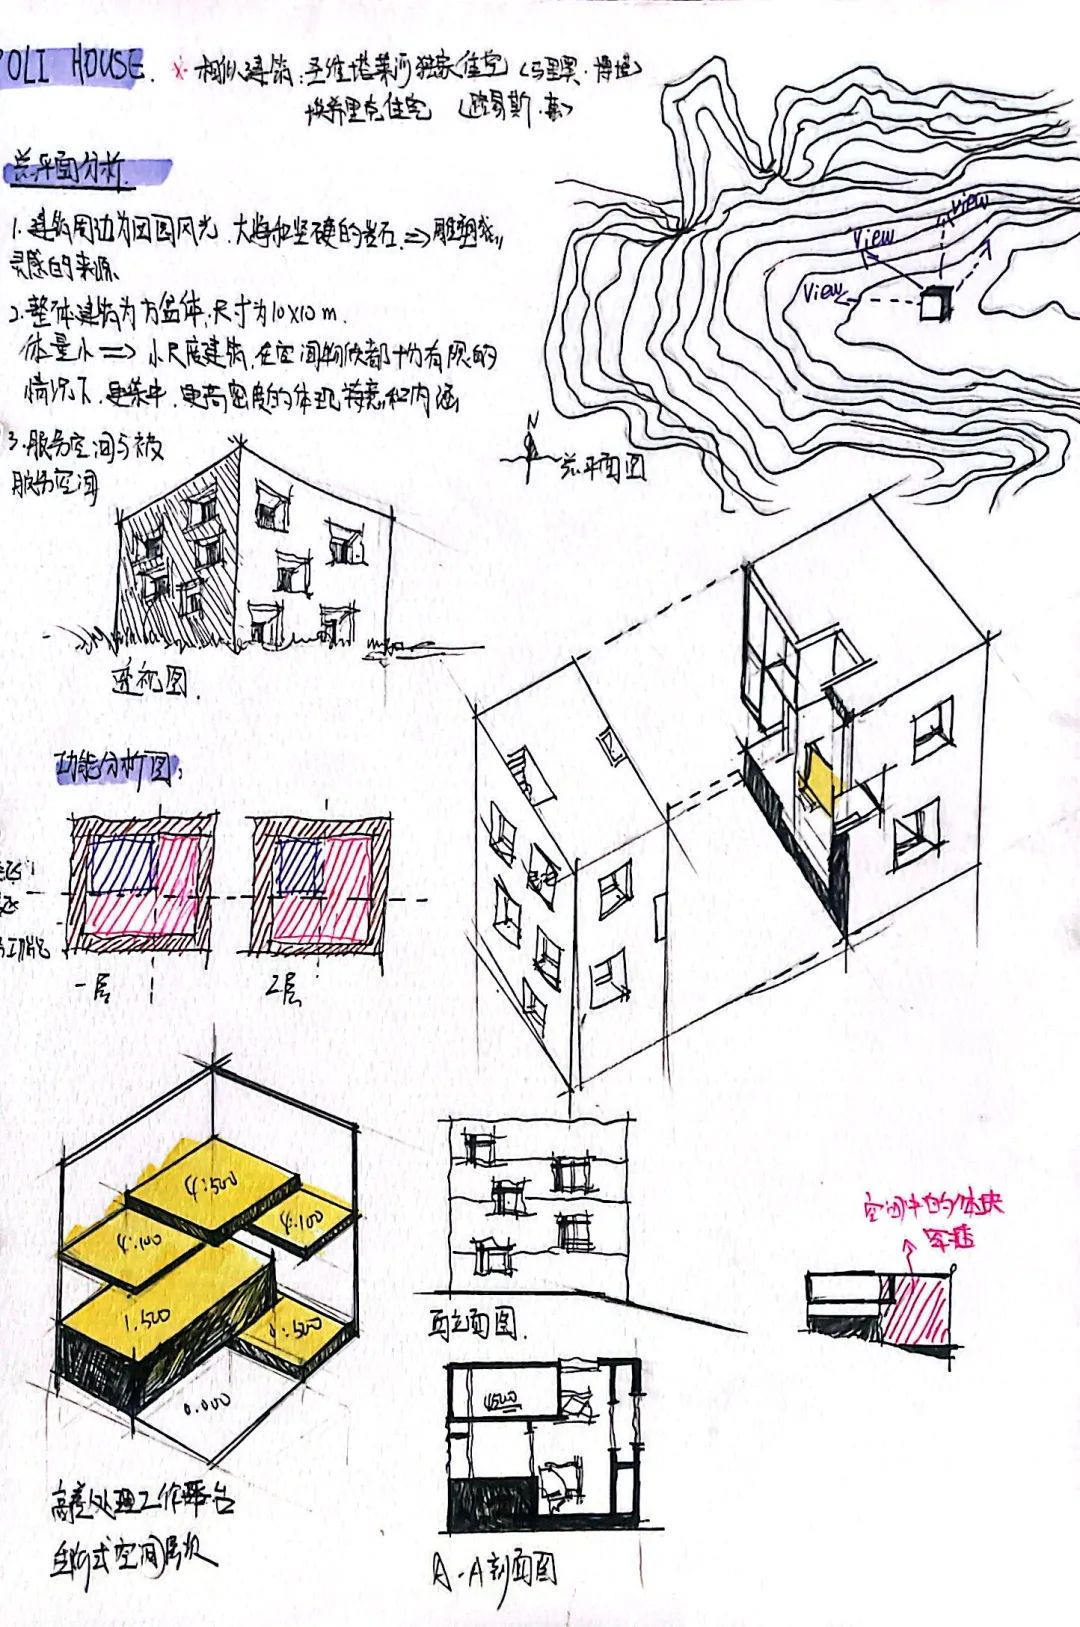 POLI HOUSE. ※ 相似建筑:圣维塔莱河独家住宅(马里奥·博塔)
埃希里克住宅 (路易斯·康)
总平面分析.
1.建筑周边为田园风光,大海和坚硬的岩石.⇒雕塑感
灵感的来源.
2.整体建筑为方盒体,尺寸为10×10m.
体量小⇒小尺度建筑,在空间都十分有限的
情况下,更集中,更高密度的体现和内涵
3.服务空间与被
服务空间
view
view
view
N
总平面图
透视图.
功能分析图:
一层
2层
4.500
4.100
4.100
1.500
0.500
0.000
高差处理工作平台
空间层次
西立面图.
4500
A-A剖面图
空间中的体块
穿插